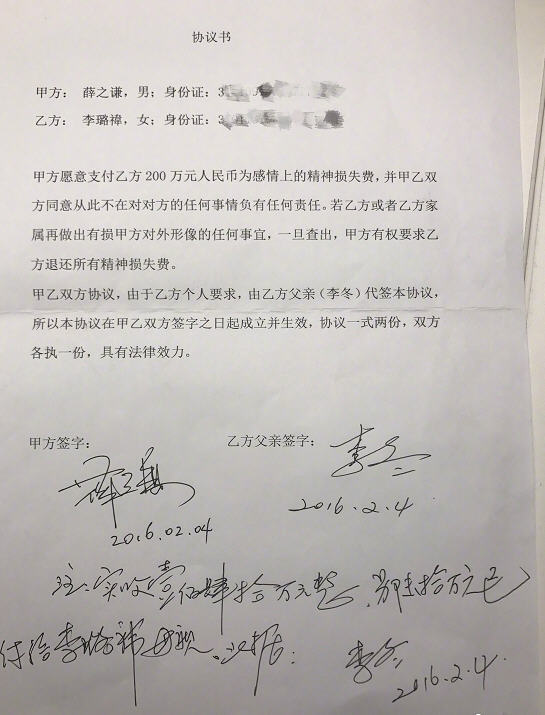 协议书
甲方： 薛之谦，男；身份证：3
乙方： 李璐禕，女；身份证：3
甲方愿意支付乙方 200 万元人民币为感情上的精神损失费，并甲乙双
方同意从此不在对对方的任何事情负有任何责任。若乙方或者乙方家
属再做出有损甲方对外形像的任何事宜，一旦查出，甲方有权要求乙
方退还所有精神损失费。
甲乙双方协议，由于乙方个人要求，由乙方父亲（李冬）代签本协议，
所以本协议在甲乙双方签字之日起成立并生效，协议一式两份，双方
各执一份，具有法律效力。
甲方签字： 乙方父亲签字：
薛之谦 李冬
2016.02.04 2016.2.4
注：实收壹佰肆拾万元整，陆拾万元已
付给李璐禕母亲。收据：李冬
2016.2.4.